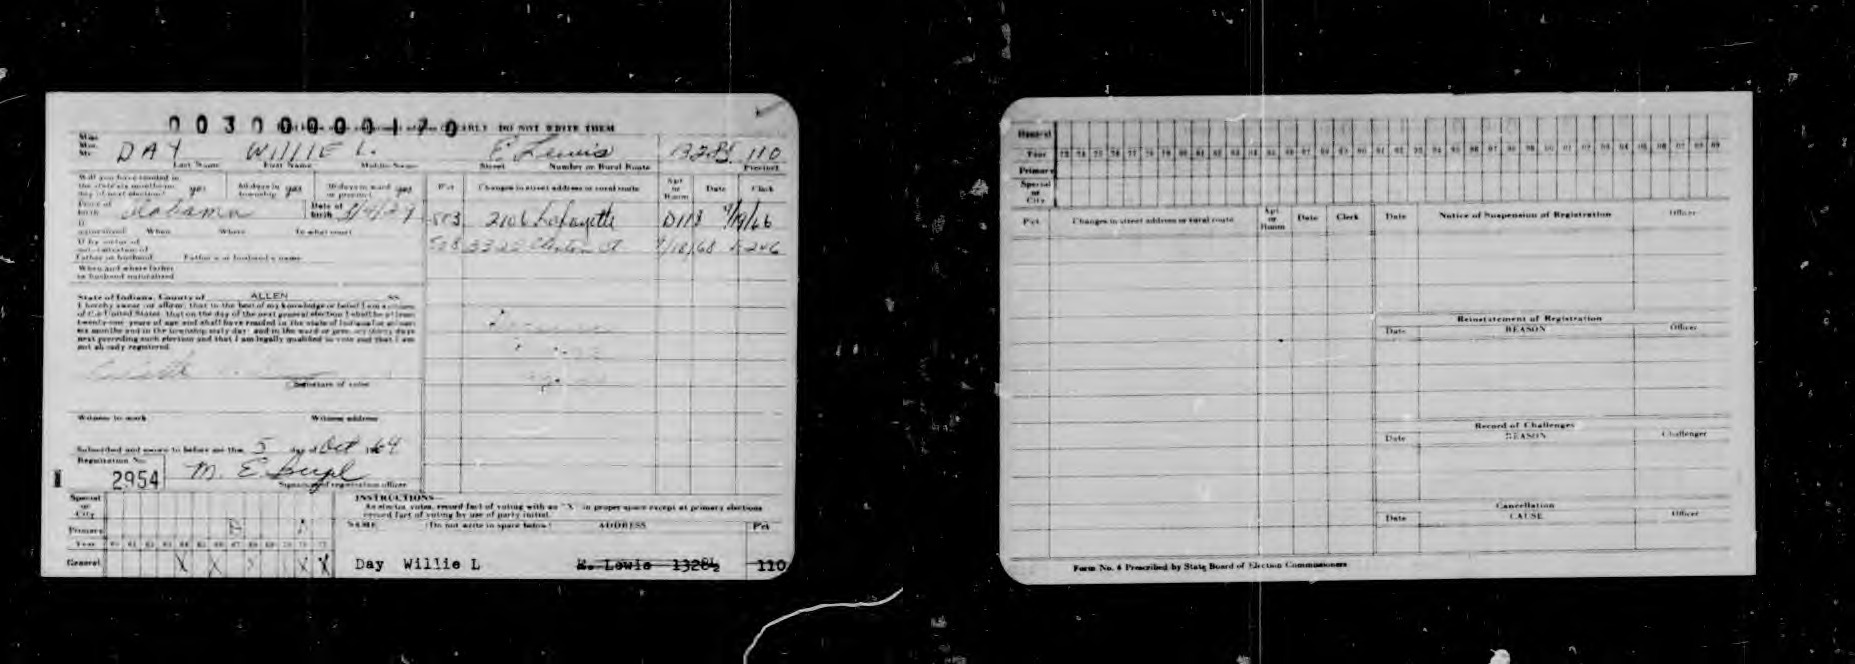 00300000170
CLEARLY DO NOT WRITE THEM
Miss
Mrs.
Mr. DAY WILLIE L. E Lewis 1328½ 110
Last Name First Name Middle Name Street Number or Rural Route Precinct
Will you have resided in
the state six months on yes 60 days in yes 30 days in ward yes
day of next election? township or precinct
Pct Changes in street address or rural route Apt or Room Date Clerk
Place of birth Alabama Date of birth 3/4/29
503 2106 Lafayette D113 9/9/66
If naturalized When Where In what court
508 3322 Clinton St 9/18/68 246
If by virtue of
naturalization of
father or husband Father's or husband's name
When and where father
or husband naturalized
State of Indiana, County of ALLEN SS
I hereby swear (or affirm) that to the best of my knowledge or belief I am a citizen
of the United States, that on the day of the next general election I shall be at least
twenty-one years of age and shall have resided in the state of Indiana for at least
six months and in the township sixty days and in the ward or precinct thirty days
next preceding such election and that I am legally qualified to vote and that I am
not already registered.
Signature of voter
Witness to mark Witness address
Subscribed and sworn to before me this 5 day of Oct 1964
Registration No.
2954 M. E.
Signature of registration officer
Special
or
City
Primary
Year 60 61 62 63 64 65 66 67 68 69 70 71 72
General X X X X
INSTRUCTIONS—
As elector votes, record fact of voting with an "X" in proper space except at primary elections
record fact of voting by use of party initial.
NAME (Do not write in space below) ADDRESS Pct
Day Willie L E. Lewis 1328½ 110
General
Year 73 74 75 76 77 78 79 80 81 82 83 84 85 86 87 88 89 90 91 92 93 94 95 96 97 98 99 00 01 02 03 04 05 06 07 08 09
Primary
Special
or
City
Pct Changes in street address or rural route Apt or Room Date Clerk Date Notice of Suspension of Registration Officer
Reinstatement of Registration
Date REASON Officer
Record of Challenges
Date REASON Challenger
Cancellation
Date CAUSE Officer
Form No. 6 Prescribed by State Board of Election Commissioners